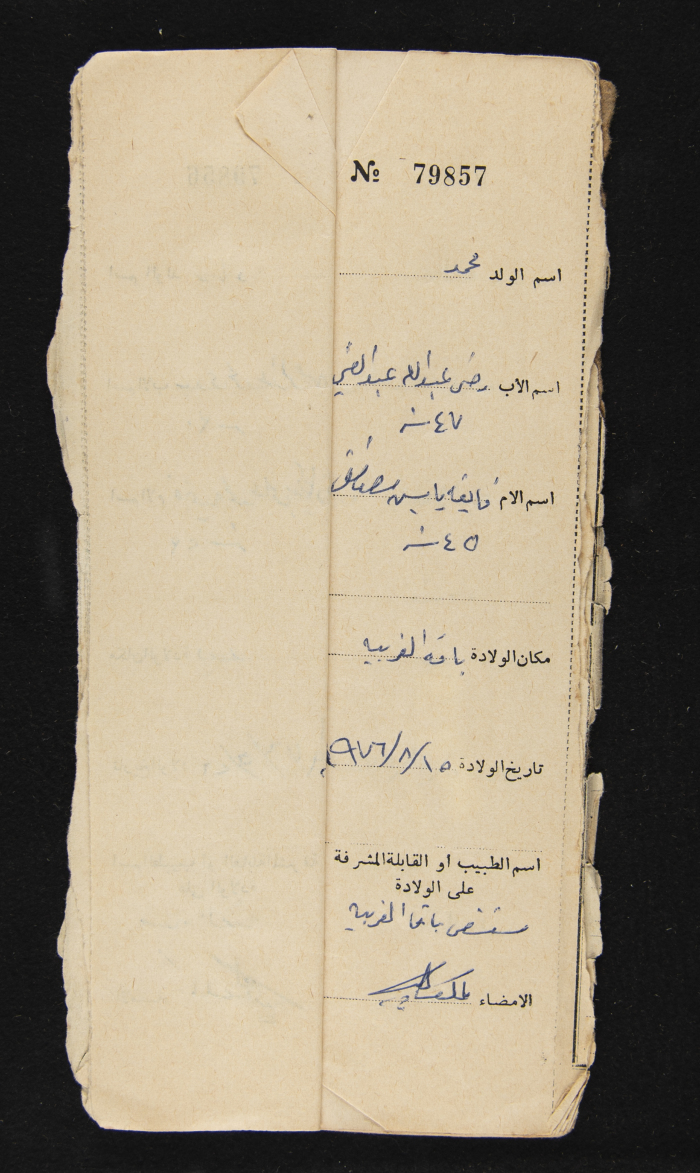 № 79857
اسم الولد محمد
اسم الأب رضى عبدالله عبدالغني
٤٧ سنه
اسم الام فايقه ياسين
٤٥ سنه
مكان الولادة باقه الغربيه
تاريخ الولادة ١٥/٨/٩٧٦
اسم الطبيب او القابلة المشرفة
على الولادة
باقا الغربيه
الامضاء